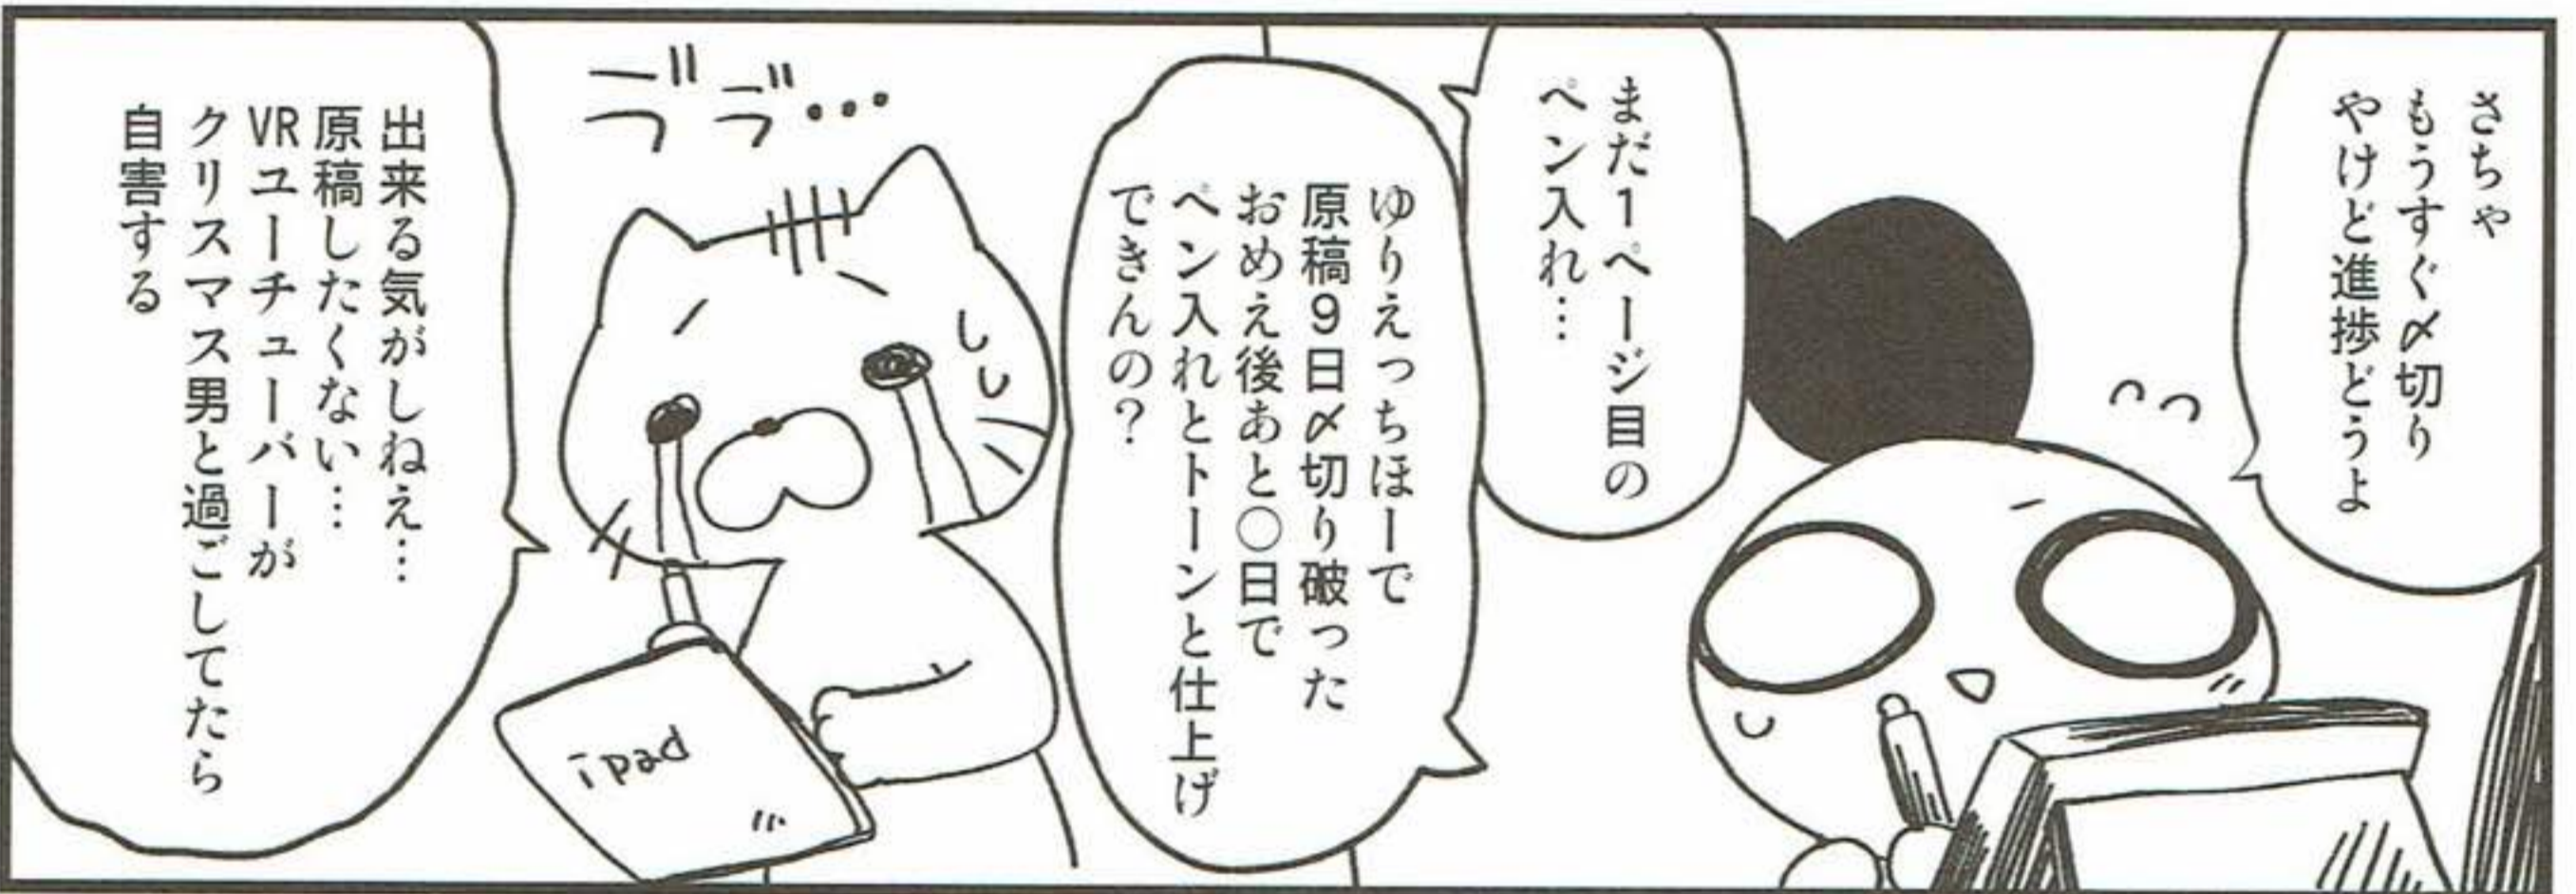 さちゃ
もうすぐ〆切り
やけど進捗どうよ
まだ1ページ目の
ペン入れ…
ゆりえっちほーで
原稿9日〆切り破った
おめえ後あと〇日で
ペン入れとトーンと仕上げ
できんの?
ブブ…
ipad
出来る気がしねえ…
原稿したくない…
VRユーチューバーが
クリスマス男と過ごしてたら
自害する